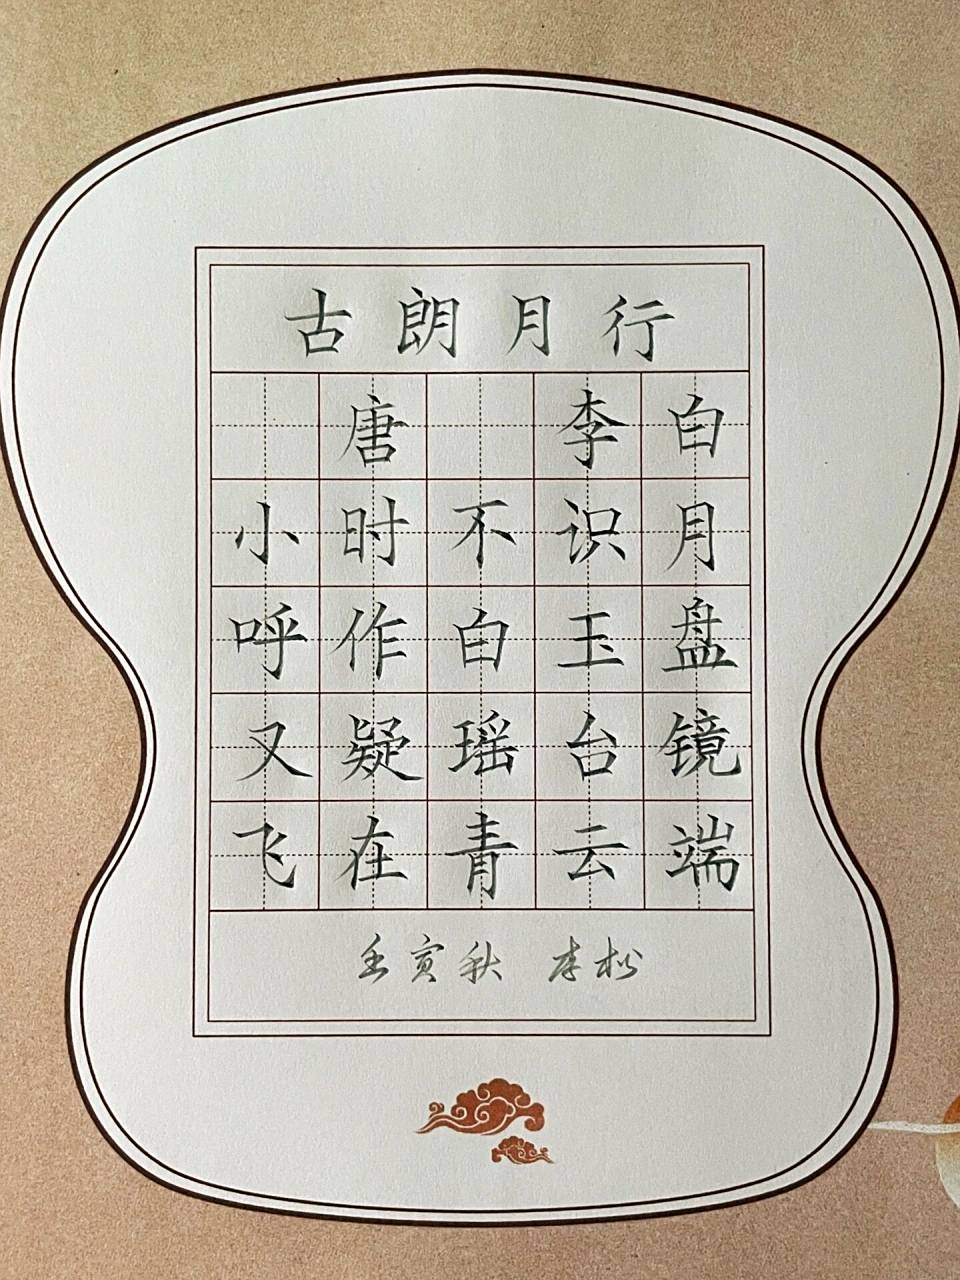 古朗月行
唐 李白
小时不识月
呼作白玉盘
又疑瑶台镜
飞在青云端
壬寅秋 李松